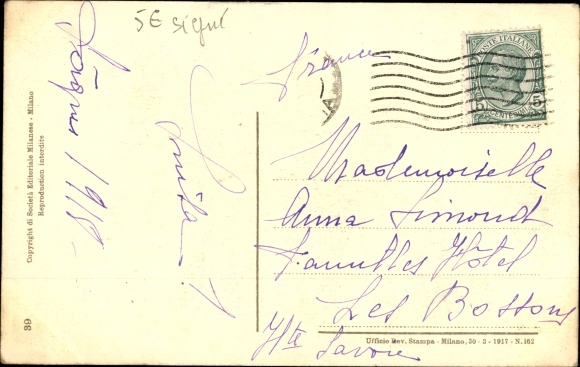 5 E signé
1918
Copyright di Società Editoriale Milanese - Milano
Reproduction interdite
39
France
POSTE ITALIANE
5 CENTESIMI 5
Mademoiselle
Anna Simond
Hôtel
Les Bossons
Hte Savoie
Ufficio Rev. Stampa - Milano, 30 - 3 - 1917 - N. 162